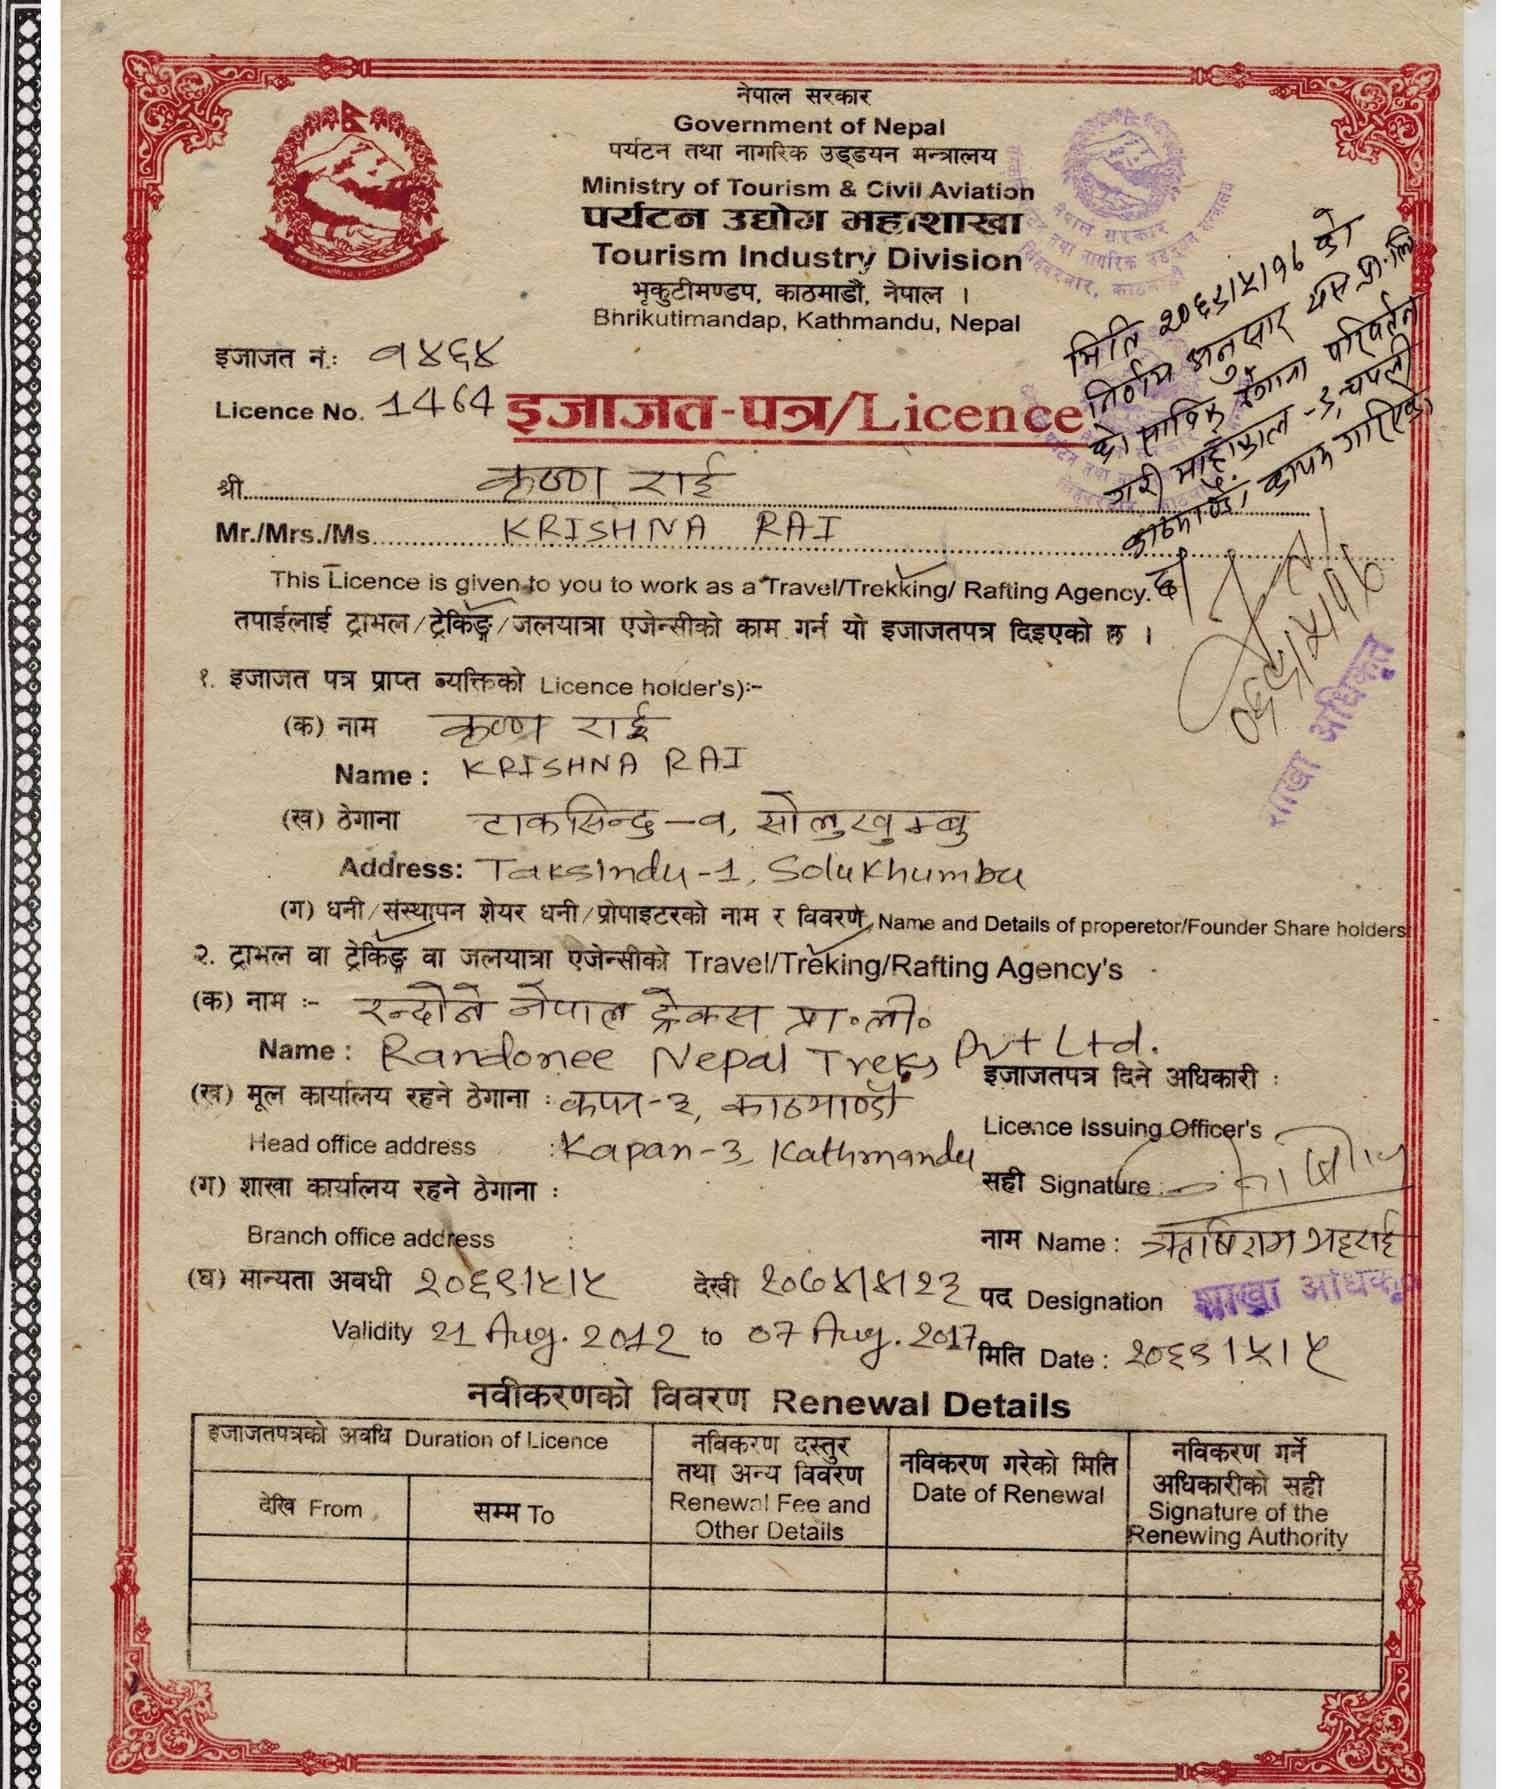 नेपाल सरकार
Government of Nepal
पर्यटन तथा नागरिक उड्डयन मन्त्रालय
Ministry of Tourism & Civil Aviation
पर्यटन उद्योग महाशाखा
Tourism Industry Division
भृकुटीमण्डप, काठमाडौं, नेपाल ।
Bhrikutimandap, Kathmandu, Nepal
नेपाल सरकार
इजाजत नं.: १४६४
Licence No. 1464
इजाजत-पत्र/Licence
मिति को
निर्णय अनुसार यस प्रा.लि
को साविक ठेगाना परिवर्तन
गरी
काठमाण्डौ कायम गरिएको
छ।
श्री कृष्ण राई
Mr./Mrs./Ms. KRISHNA RAI
This Licence is given to you to work as a Travel/Trekking/ Rafting Agency.
तपाईलाई ट्राभल/ट्रेकिङ्ग/जलयात्रा एजेन्सीको काम गर्न यो इजाजतपत्र दिइएको छ ।
शाखा अधिकृत
१. इजाजत पत्र प्राप्त व्यक्तिको Licence holder's):-
(क) नाम कृष्ण राई
Name : KRISHNA RAI
(ख) ठेगाना टाकसिन्दु-१, सोलुखुम्बु
Address: Taksindu-1, Solukhumbu
(ग) धनी/संस्थापन शेयर धनी/प्रोपाइटरको नाम र विवरण Name and Details of properetor/Founder Share holders
२. ट्राभल वा ट्रेकिङ्ग वा जलयात्रा एजेन्सीको Travel/Treking/Rafting Agency's
(क) नाम :- रन्दोने नेपाल ट्रेकस प्रा.ली.
Name : Randonee Nepal Treks Pvt Ltd.
(ख) मूल कार्यालय रहने ठेगाना : कपन-३, काठमाण्डौ
Head office address : Kapan-3, Kathmandu
(ग) शाखा कार्यालय रहने ठेगाना :
Branch office address :
(घ) मान्यता अवधी २०६९।५।५ देखी २०७४।४।२३
Validity 21 Aug. 2012 to 07 Aug. 2017
इजाजतपत्र दिने अधिकारी :
Licence Issuing Officer's
सही Signature :
नाम Name : ऋषिराम भट्टराई
पद Designation शाखा अधिकृत
मिति Date : २०६९।५।५
नवीकरणको विवरण Renewal Details
इजाजतपत्रको अवधि Duration of Licence
देखि From
सम्म To
नविकरण दस्तुर
तथा अन्य विवरण
Renewal Fee and
Other Details
नविकरण गरेको मिति
Date of Renewal
नविकरण गर्ने
अधिकारीको सही
Signature of the
Renewing Authority